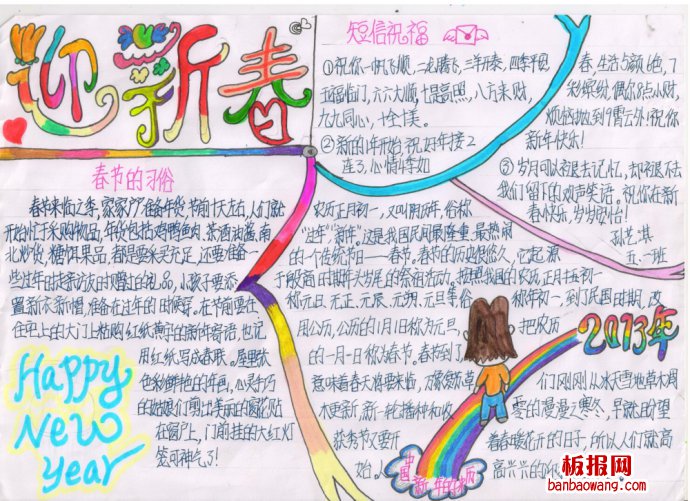 迎新春
短信祝福
①祝你一帆飞顺,二龙腾飞,三羊开泰,四季平安,
五福临门,六六大顺,七星高照,八方来财,
九九同心,十全十美。
②新的1年开始,祝好年接2
连3,心情4季如
春,生活5颜6色,7
彩缤纷,偶尔8点小财,
烦恼抛到9霄云外!祝你
新年快乐!
③岁月可以褪去记忆,却褪不去
我们留下的欢声笑语。祝你在新
春快乐,岁岁安怡!
五、一班
春节的习俗
春节来临之季,家家户户准备年货,节前十天左右,人们就
开始忙于采购物品,年货包括鸡鸭鱼肉、茶酒油酱、南
北炒货、糖饵果品,都是要采买充足,还要准备一
些过年时走亲访友时赠送的礼品,小孩子要添
置新衣新帽,准备在过年的时候穿。在节前要在
住宅上的大门上粘贴红纸黄字的新年寄语,也就
用红纸写成春联。屋里张贴
色彩鲜艳的年画,心灵手巧
的姑娘们剪出美丽的窗花贴
在窗户上,门前挂的大红灯
农历正月初一,又叫阴历年,俗称
“过年”,“新年”。这是我国民间最隆重、最热闹
的一个传统节日——春节。春节的历史很悠久,它起源
于殷商时期年头岁尾的祭祖活动。按照我国的农历,正月初一
称元日、元正、元辰、元朔、元旦等俗
称年初一,到了民国时期,改
用公历,公历的1月1日称为元旦,
把农历
的一月一日称为春节。春节到了,
意味着春天将要来临,万象复苏草
木更新,新一轮播种和收
获季节又要开
始。人
们刚刚从冰天雪地草木凋
零的漫漫寒冬,早就盼望
着春暖花开的日子,所以人们就高
2013年
Happy
New
Year
板报网
banbaowang.com